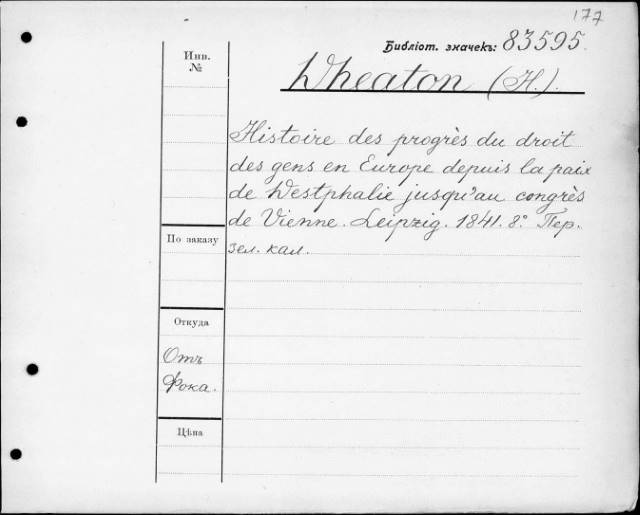 177
Библіот. значекъ: 83595.
Инв.
№
Wheaton (H.).
Histoire des progrès du droit
des gens en Europe depuis la paix
de Westphalie jusqu'au congrès
de Vienne. Leipzig. 1841. 8° Пер.
зел. кал.
По заказу
Откуда
Отъ
Фока.
Цѣна